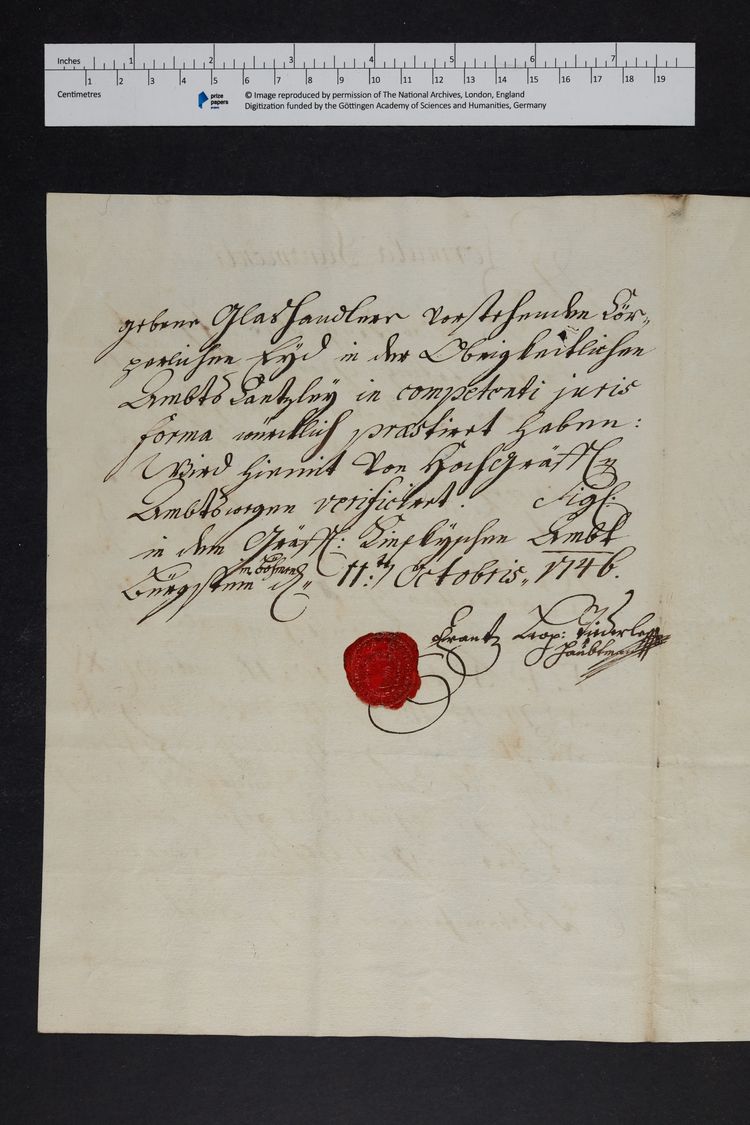 Inches 1 2 3 4 5 6 7
1 2 3 4 5 6 7 8 9 10 11 12 13 14 15 16 17 18 19
Centimetres
prize papers
© Image reproduced by permission of The National Archives, London, England
Digitization funded by the Göttingen Academy of Sciences and Humanities, Germany
gebene Glashandlere vorstehenden Cör-
perlichen Eyd in der Obrigkeitlichen
Ambts Cantzley in competenti juris
forma würcklich præstiret haben:
Wird hiemit von Hochgräffl:
Ambtswegen verificiret. Sigl:
in dem Gräffl: Kinskyschen Ambt
Bürgstein in Böhmen 11: Octobris, 1746.
Frantz Leop:
Haubtman